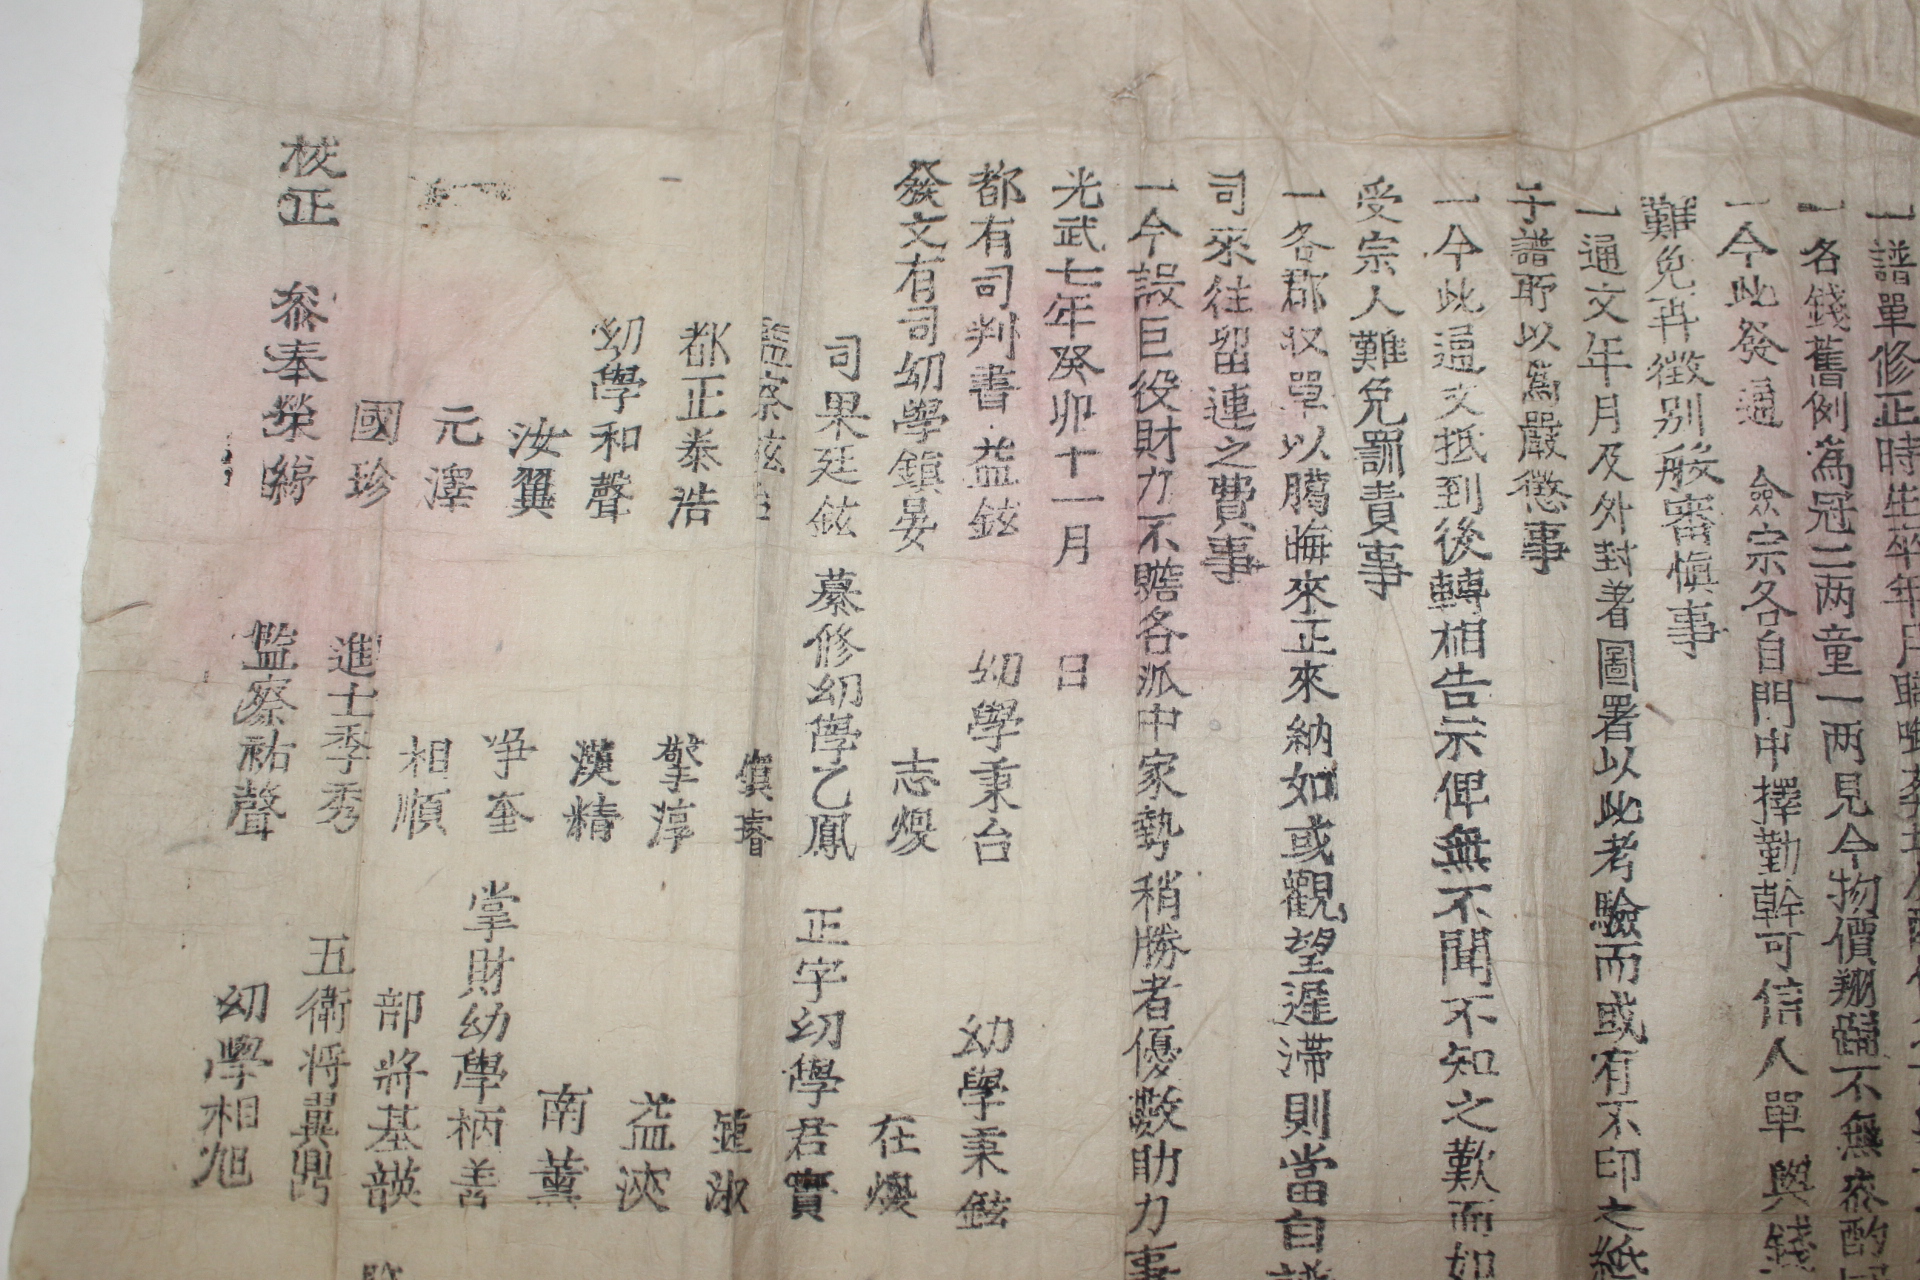 一譜單修正時生卒年月職啣
一各錢舊例爲冠二两童一两見今物價翔踊不無叅酌
一今此發通 僉宗各自門中擇勤幹可信人單與錢
難免再徵别般審愼事
一通文年月及外封著圖署以此考驗而或有不印之紙
于譜所以爲嚴懲事
一今此通文抵到後轉相告示俾無不聞不知之歎而如
受宗人難免罰責事
一各郡收單以臘晦來正來納如或觀望遲滯則當自譜
司來往留連之費事
一今設巨役財力不贍各派中家勢稍勝者優數助力事
光武七年癸卯十一月 日
都有司判書 益鉉 幼學秉台 幼學秉鉉
發文有司幼學鎭晏 志燮 在燮
司果廷鉉 纂修幼學乙鳳 正字幼學君實
監察 鎭璿 鍾淑
都正泰浩 擎淳 益浹
幼學和聲 漢精 南薰
汝翼 奎 掌財幼學柄善
元澤 相順 部將基
國珍 進士季秀 五衛將翼
校正 叅奉榮 監察祐聲 幼學相旭